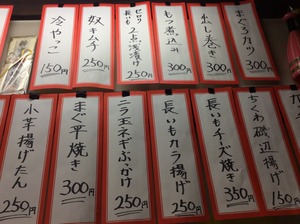 まぐろカツ
300円
出し巻き
300円
もつ煮込み
300円
セロリ
長いも
2点浅漬け
250円
奴キムチ
250円
冷やっこ
150円
ちくわ磯辺揚げ
250円
長いもチーズ焼き
350円
長いもカラ揚げ
250円
ニラ玉ネギぶっかけ
250円
まぐ平焼き
300円
小芋揚げたん
250円